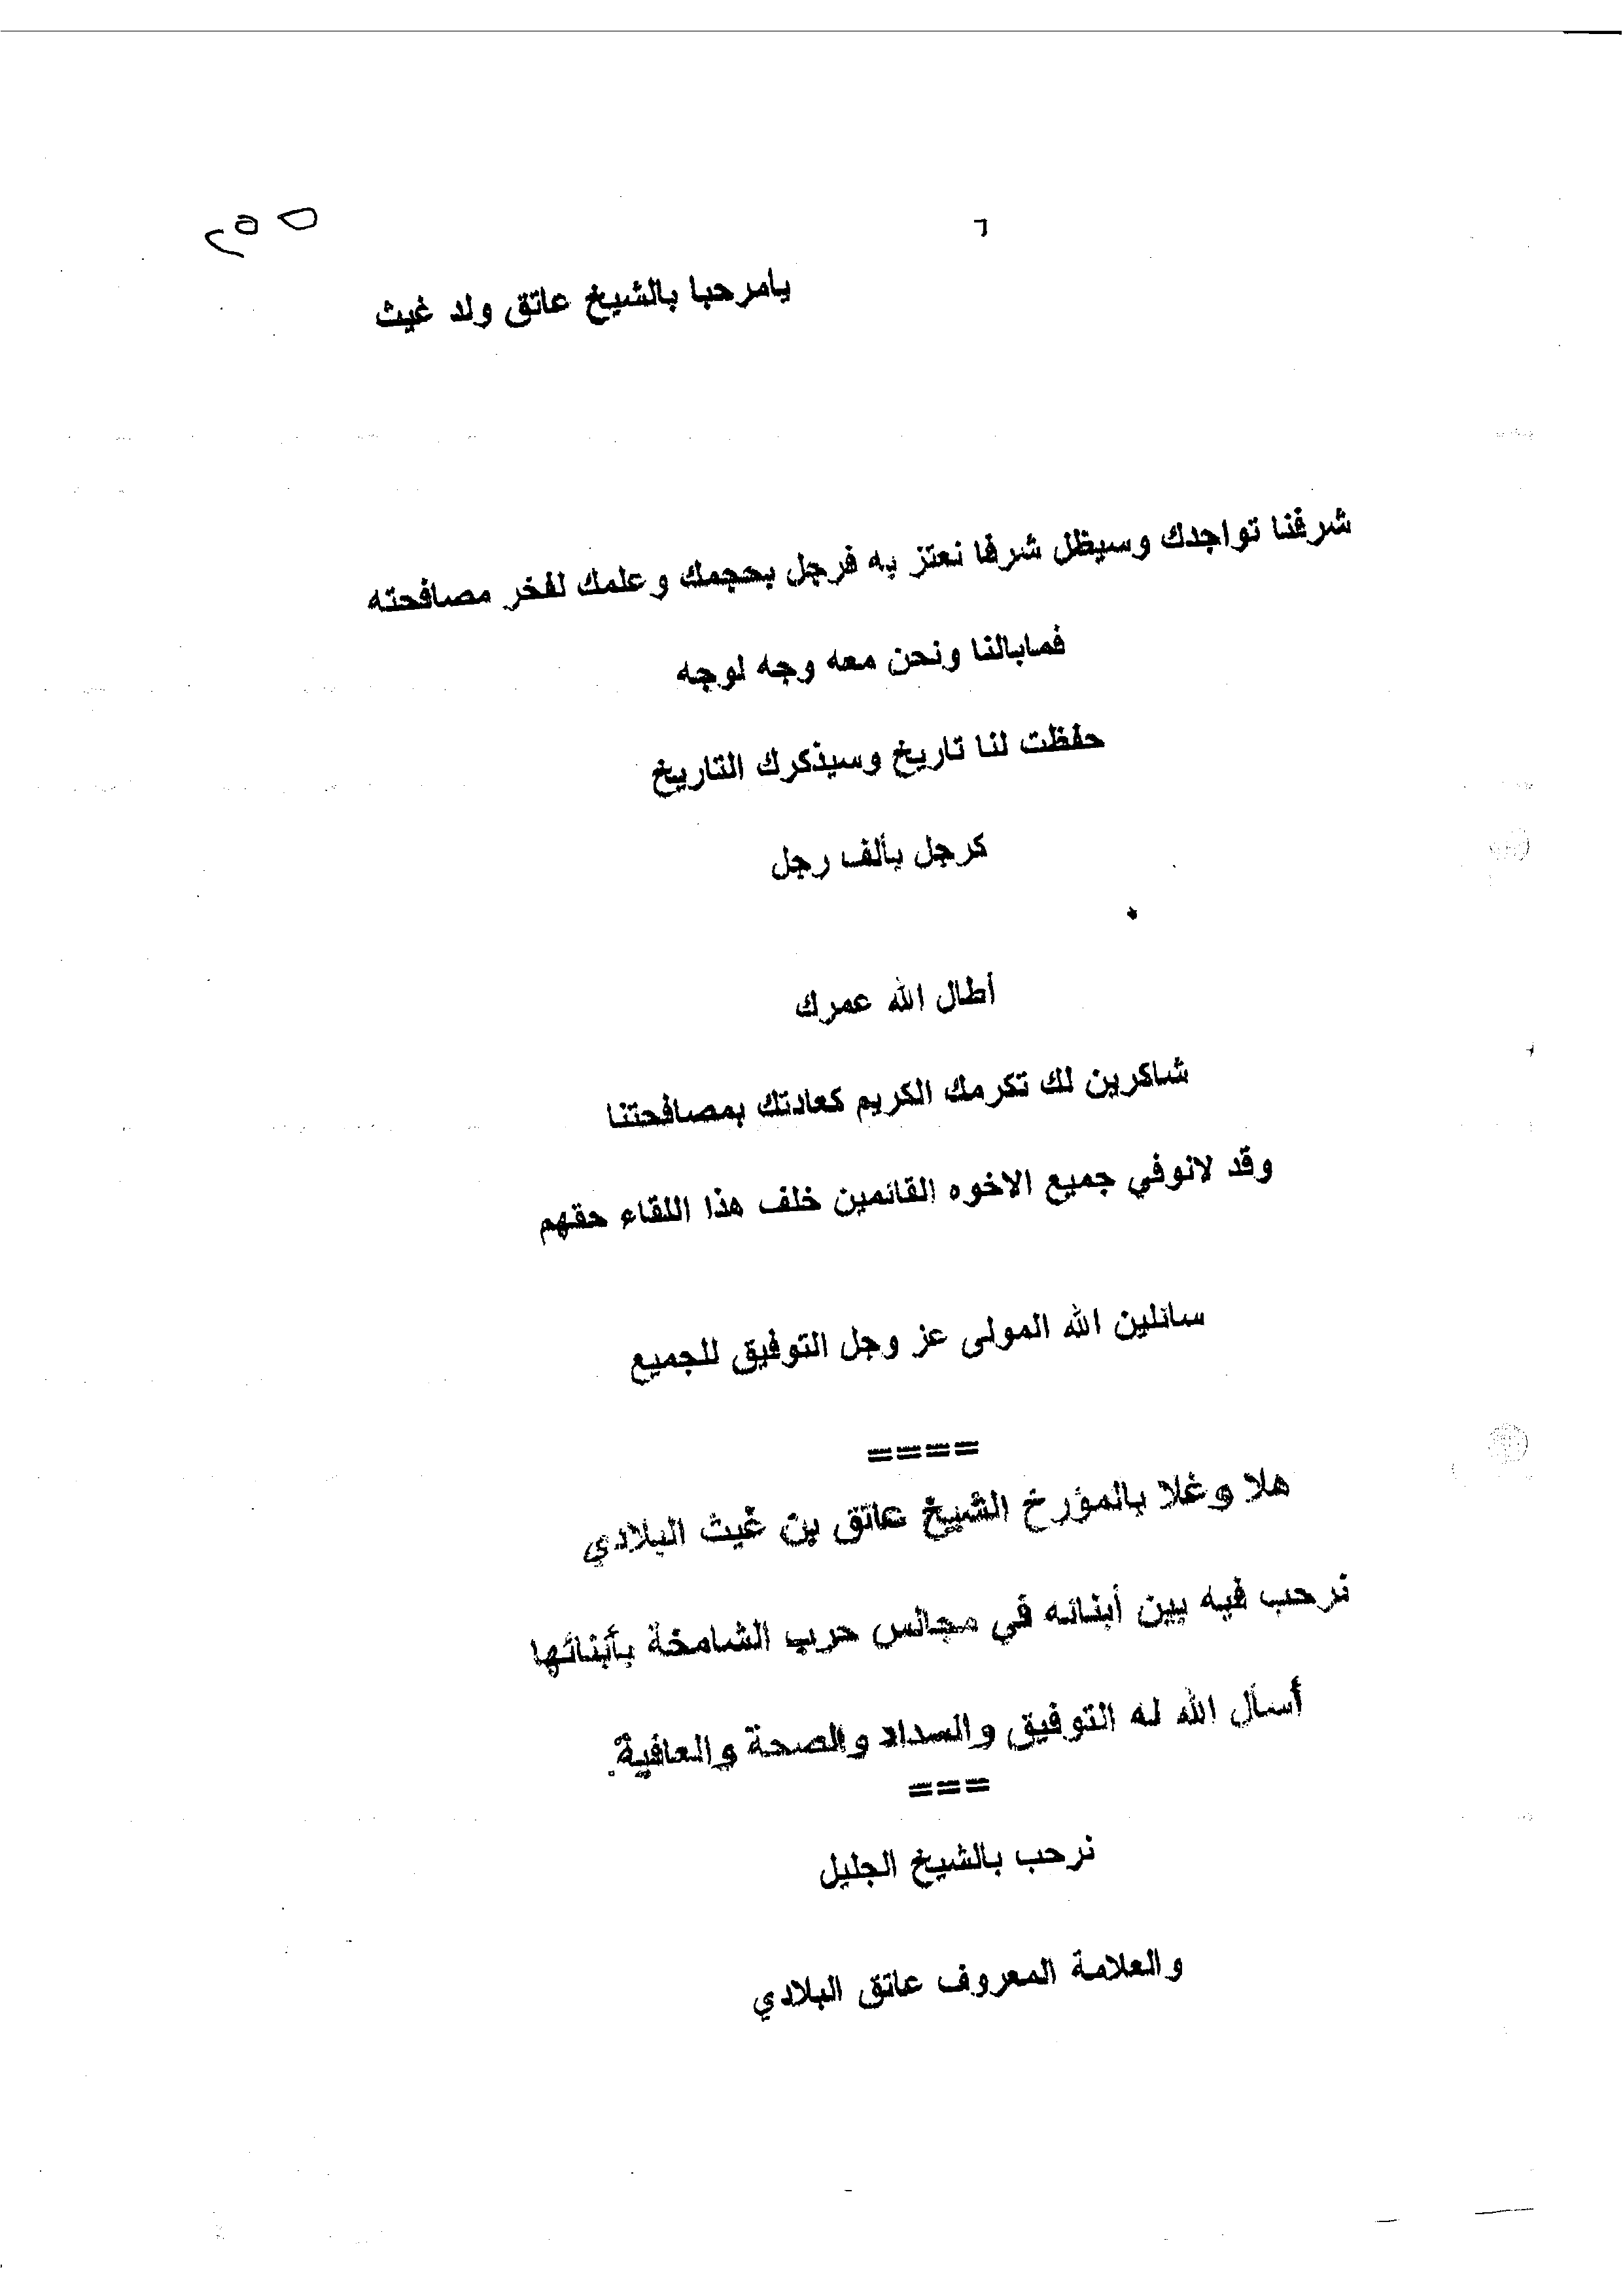 ٢٥٥
٦
يامرحبا بالشيخ عاتق ولد غيث
شرفنا تواجدك وسيظل شرفا نعتز به فرجل بحجمك وعلمك لفخر مصافحته
فمابالنا ونحن معه وجه لوجه
حفظت لنا تاريخ وسيذكرك التاريخ
كرجل بألف رجل
أطال الله عمرك
شاكرين لك تكرمك الكريم كعادتك بمصافحتنا
وقد لانوفي جميع الاخوه القائمين خلف هذا اللقاء حقهم
سائلين الله المولى عز وجل التوفيق للجميع
====
هلا وغلا بالمؤرخ الشيخ عاتق بن غيث البلادي
نرحب فيه بين أبنائه في مجالس حرب الشامخة بأبنائها
أسأل الله له التوفيق والسداد والصحة والعافية.
===
نرحب بالشيخ الجليل
والعلامة المعروف عاتق البلادي